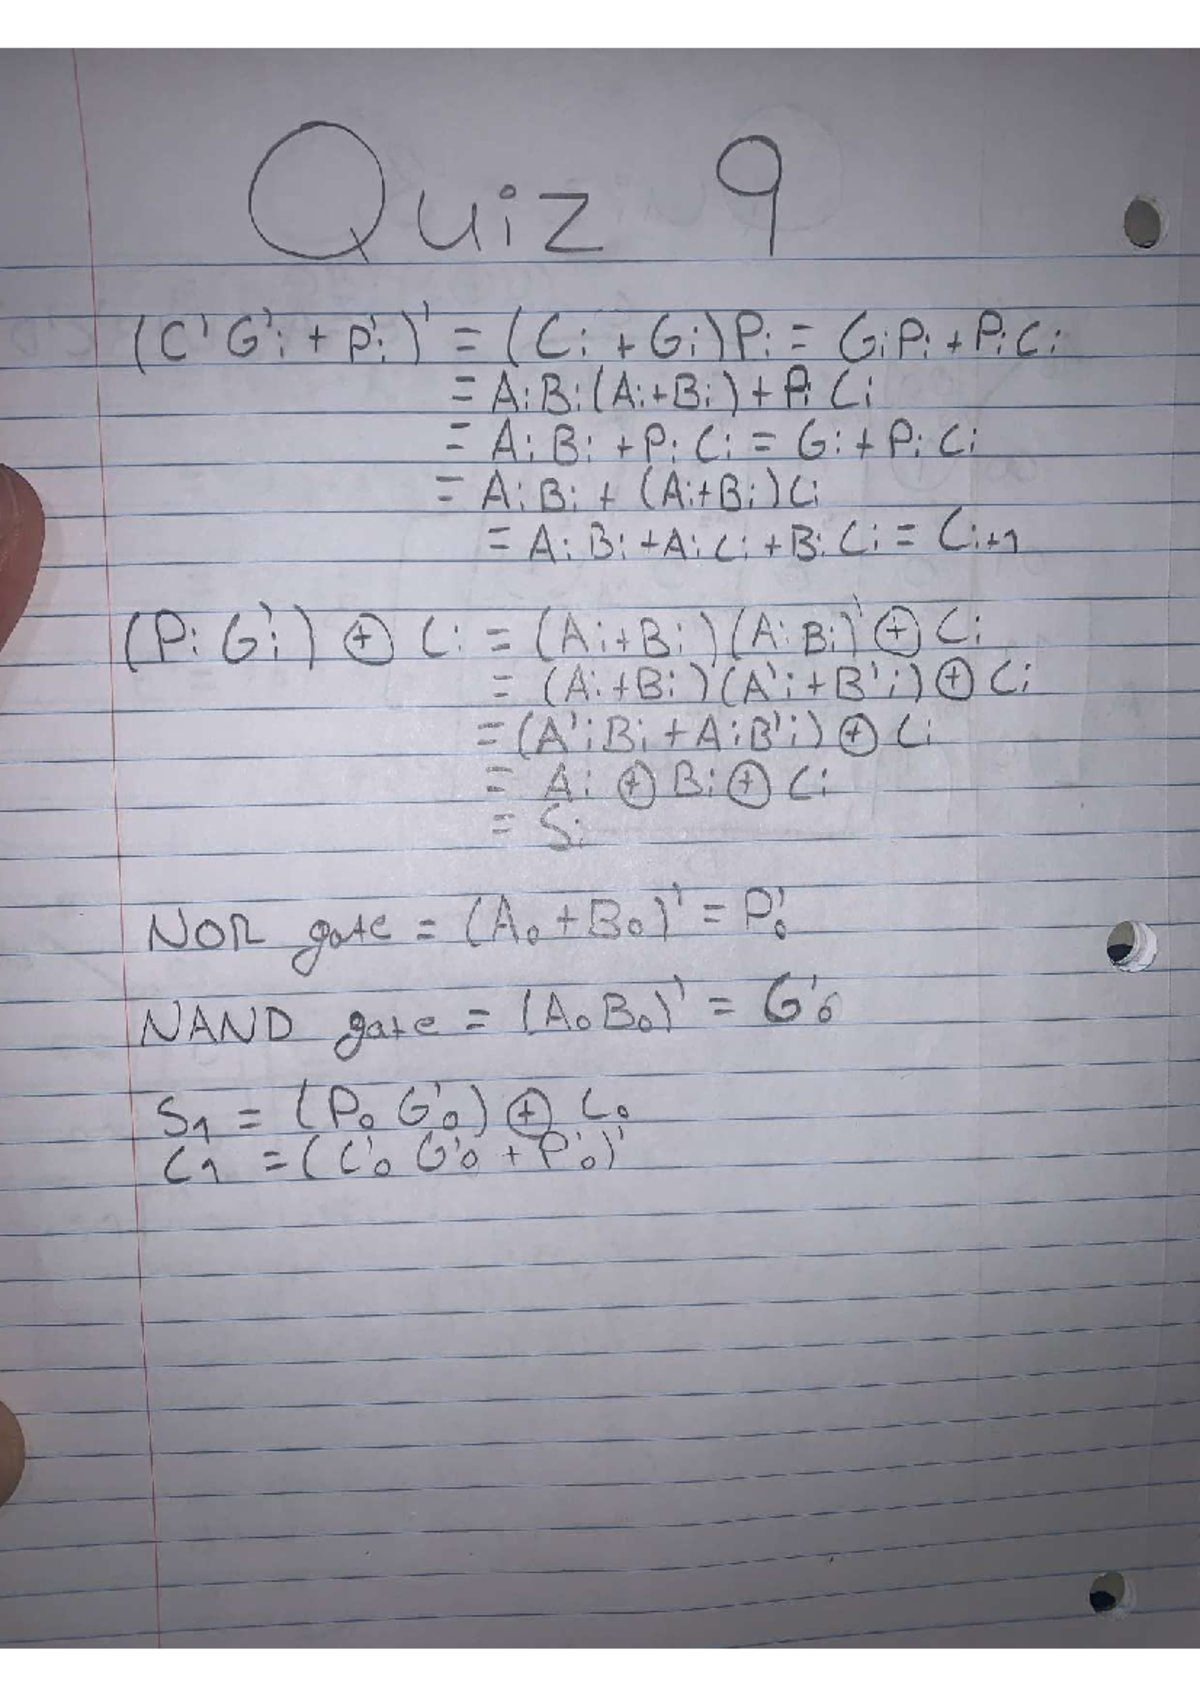 Quiz 9
(C'G'i + P'i)' = (Ci + Gi)Pi = GiPi + PiCi
= AiBi(Ai+Bi) + PiCi
= AiBi + PiCi = Gi + PiCi
= AiBi + (Ai+Bi)Ci
= AiBi + AiCi + BiCi = Ci+1
(PiG'i) ⊕ Ci = (Ai+Bi)(AiBi)' ⊕ Ci
= (Ai+Bi)(A'i+B'i) ⊕ Ci
= (A'iBi + AiB'i) ⊕ Ci
= Ai ⊕ Bi ⊕ Ci
= Si
NOR gate = (A0 + B0)' = P'0
NAND gate = (A0B0)' = G'0
S1 = (P0 G'0) ⊕ C0
C1 = (C'0 G'0 + P'0)'